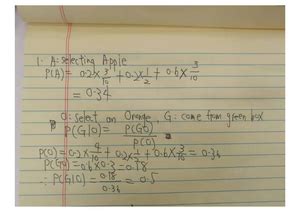 1. A: selecting Apple
P(A) = 0.2 × 3/10 + 0.2 × 1/2 + 0.6 × 3/10
= 0.34
O: select an Orange, G: come from green box
P(G|O) = P(GO)/P(O)
P(O) = 0.2 × 4/10 + 0.2 × 1/2 + 0.6 × 3/10 = 0.36
P(GO) = 0.6 × 0.3 = 0.18
∴ P(G|O) = 0.18/0.36 = 0.5